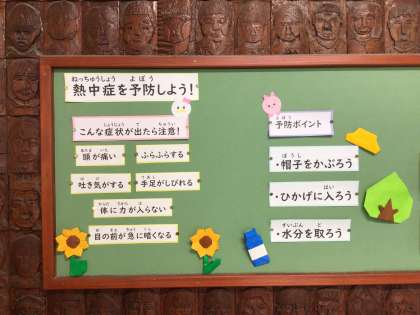 ねっちゅうしょう よぼう
熱中症を予防しよう!
しょうじょう で ちゅうい
こんな症状が出たら注意!
あたま いた
頭が痛い
ふらふらする
は け
吐き気がする
てあし
手足がしびれる
からだ ちから はい
体に力が入らない
め まえ きゅう くら
目の前が急に暗くなる
よぼう
予防ポイント
ぼうし
・帽子をかぶろう
はい
・ひかげに入ろう
すいぶん と
・水分を取ろう